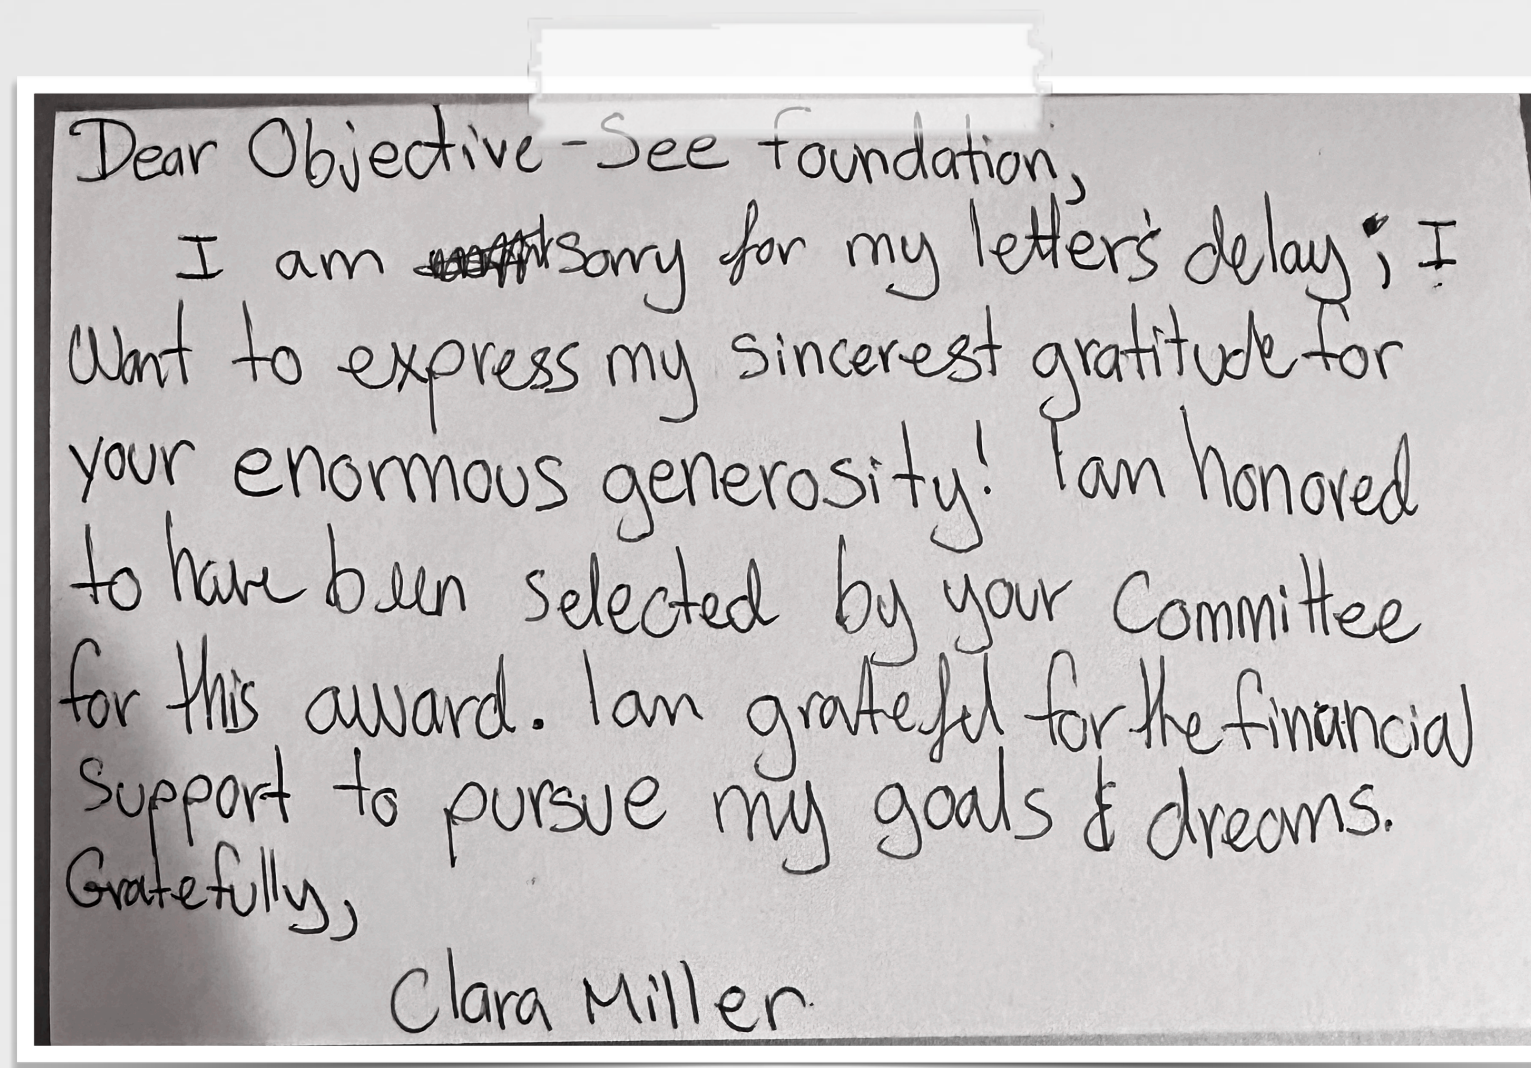 Dear Objective-See foundation,
I am sorry for my letter's delay; I
want to express my sincerest gratitude for
your enormous generosity! I am honored
to have been selected by your Committee
for this award. I am grateful for the financial
support to pursue my goals & dreams.
Gratefully,
Clara Miller